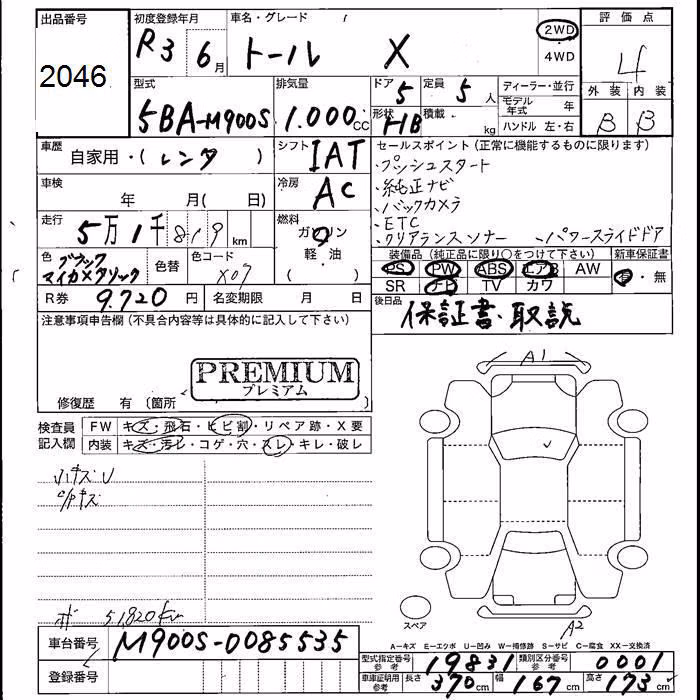 出品番号
2046
初度登録年月
R3 6月
車名・グレード
トール X
2WD
4WD
評価点
4
外装 内装
B B
型式
5BA-M900S
排気量
1.000cc
ドア
5
定員
5人
形状
HB
積載
kg
ディーラー・並行
モデル年式 年
ハンドル 左・右
車歴
自家用・(レンタ)
シフト
IAT
セールスポイント(正常に機能するものに限ります)
・プッシュスタート
・純正ナビ
・バックカメラ
・ETC
・クリアランスソナー ・パワースライドドア
車検
年 月( 日)
冷房
AC
走行
5万1千819km
燃料
ガソリン
軽・油
色
ブラック
マイカメタリック
色替
色コード
X07
装備品(純正品に限り○をつけて下さい)
PS PW ABS エアB AW
SR ナビ TV カワ
新車保証書
有・無
R券 9.720円
名変期限 月 日
後日品
保証書・取説
注意事項申告欄(不具合内容等は具体的に記入して下さい)
PREMIUM
プレミアム
修復歴 有 〔箇所
検査員記入欄
FW キズ・飛石・ヒビ割・リペア跡・X要
内装 キズ・汚レ・コゲ・穴・スレ・キレ・破レ
A1
51,820km
スペア
A2
車台番号
M900S-0085535
登録番号
A-キズ E-エクボ U-凹み W-補修跡 S-サビ C-腐食 XX-交換済
型式指定番号 参考
19831
類別区分番号 参考
0001
車庫証明用 参考
長さ 370cm
幅 167cm
高さ 173cm